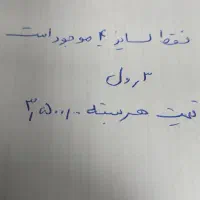 فقط سایز ۴ موجود است
۳ رول
قیمت هر بسته ۳,۵۰۰,۰۰۰